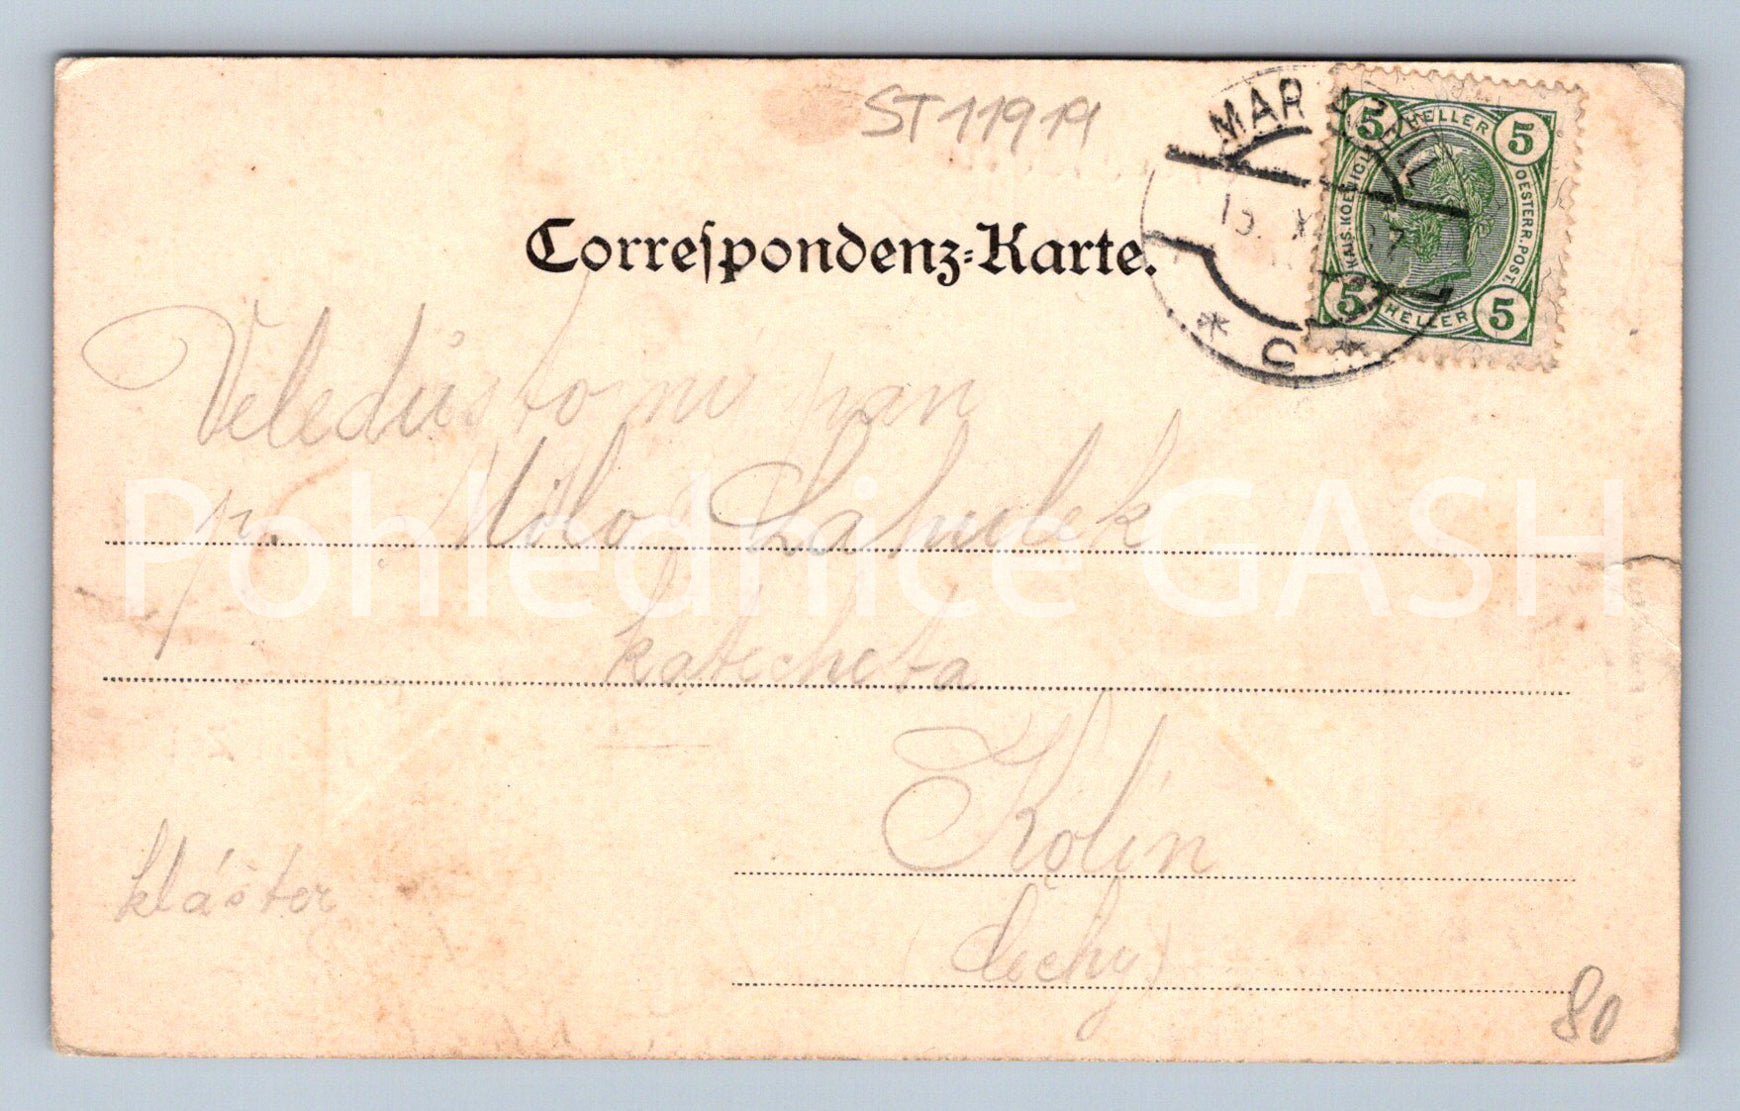 ST 11919
MARIAZELL
5 HELLER 5
KAIS. KOENIGL.
OESTERR. POST
5 HELLER 5
* C *
Correſpondenz-Karte.
Veledůstojný pan
p. Milo Záhudek
katecheta
Kolín
klášter
(Čechy)
80
Pohlednice GASH